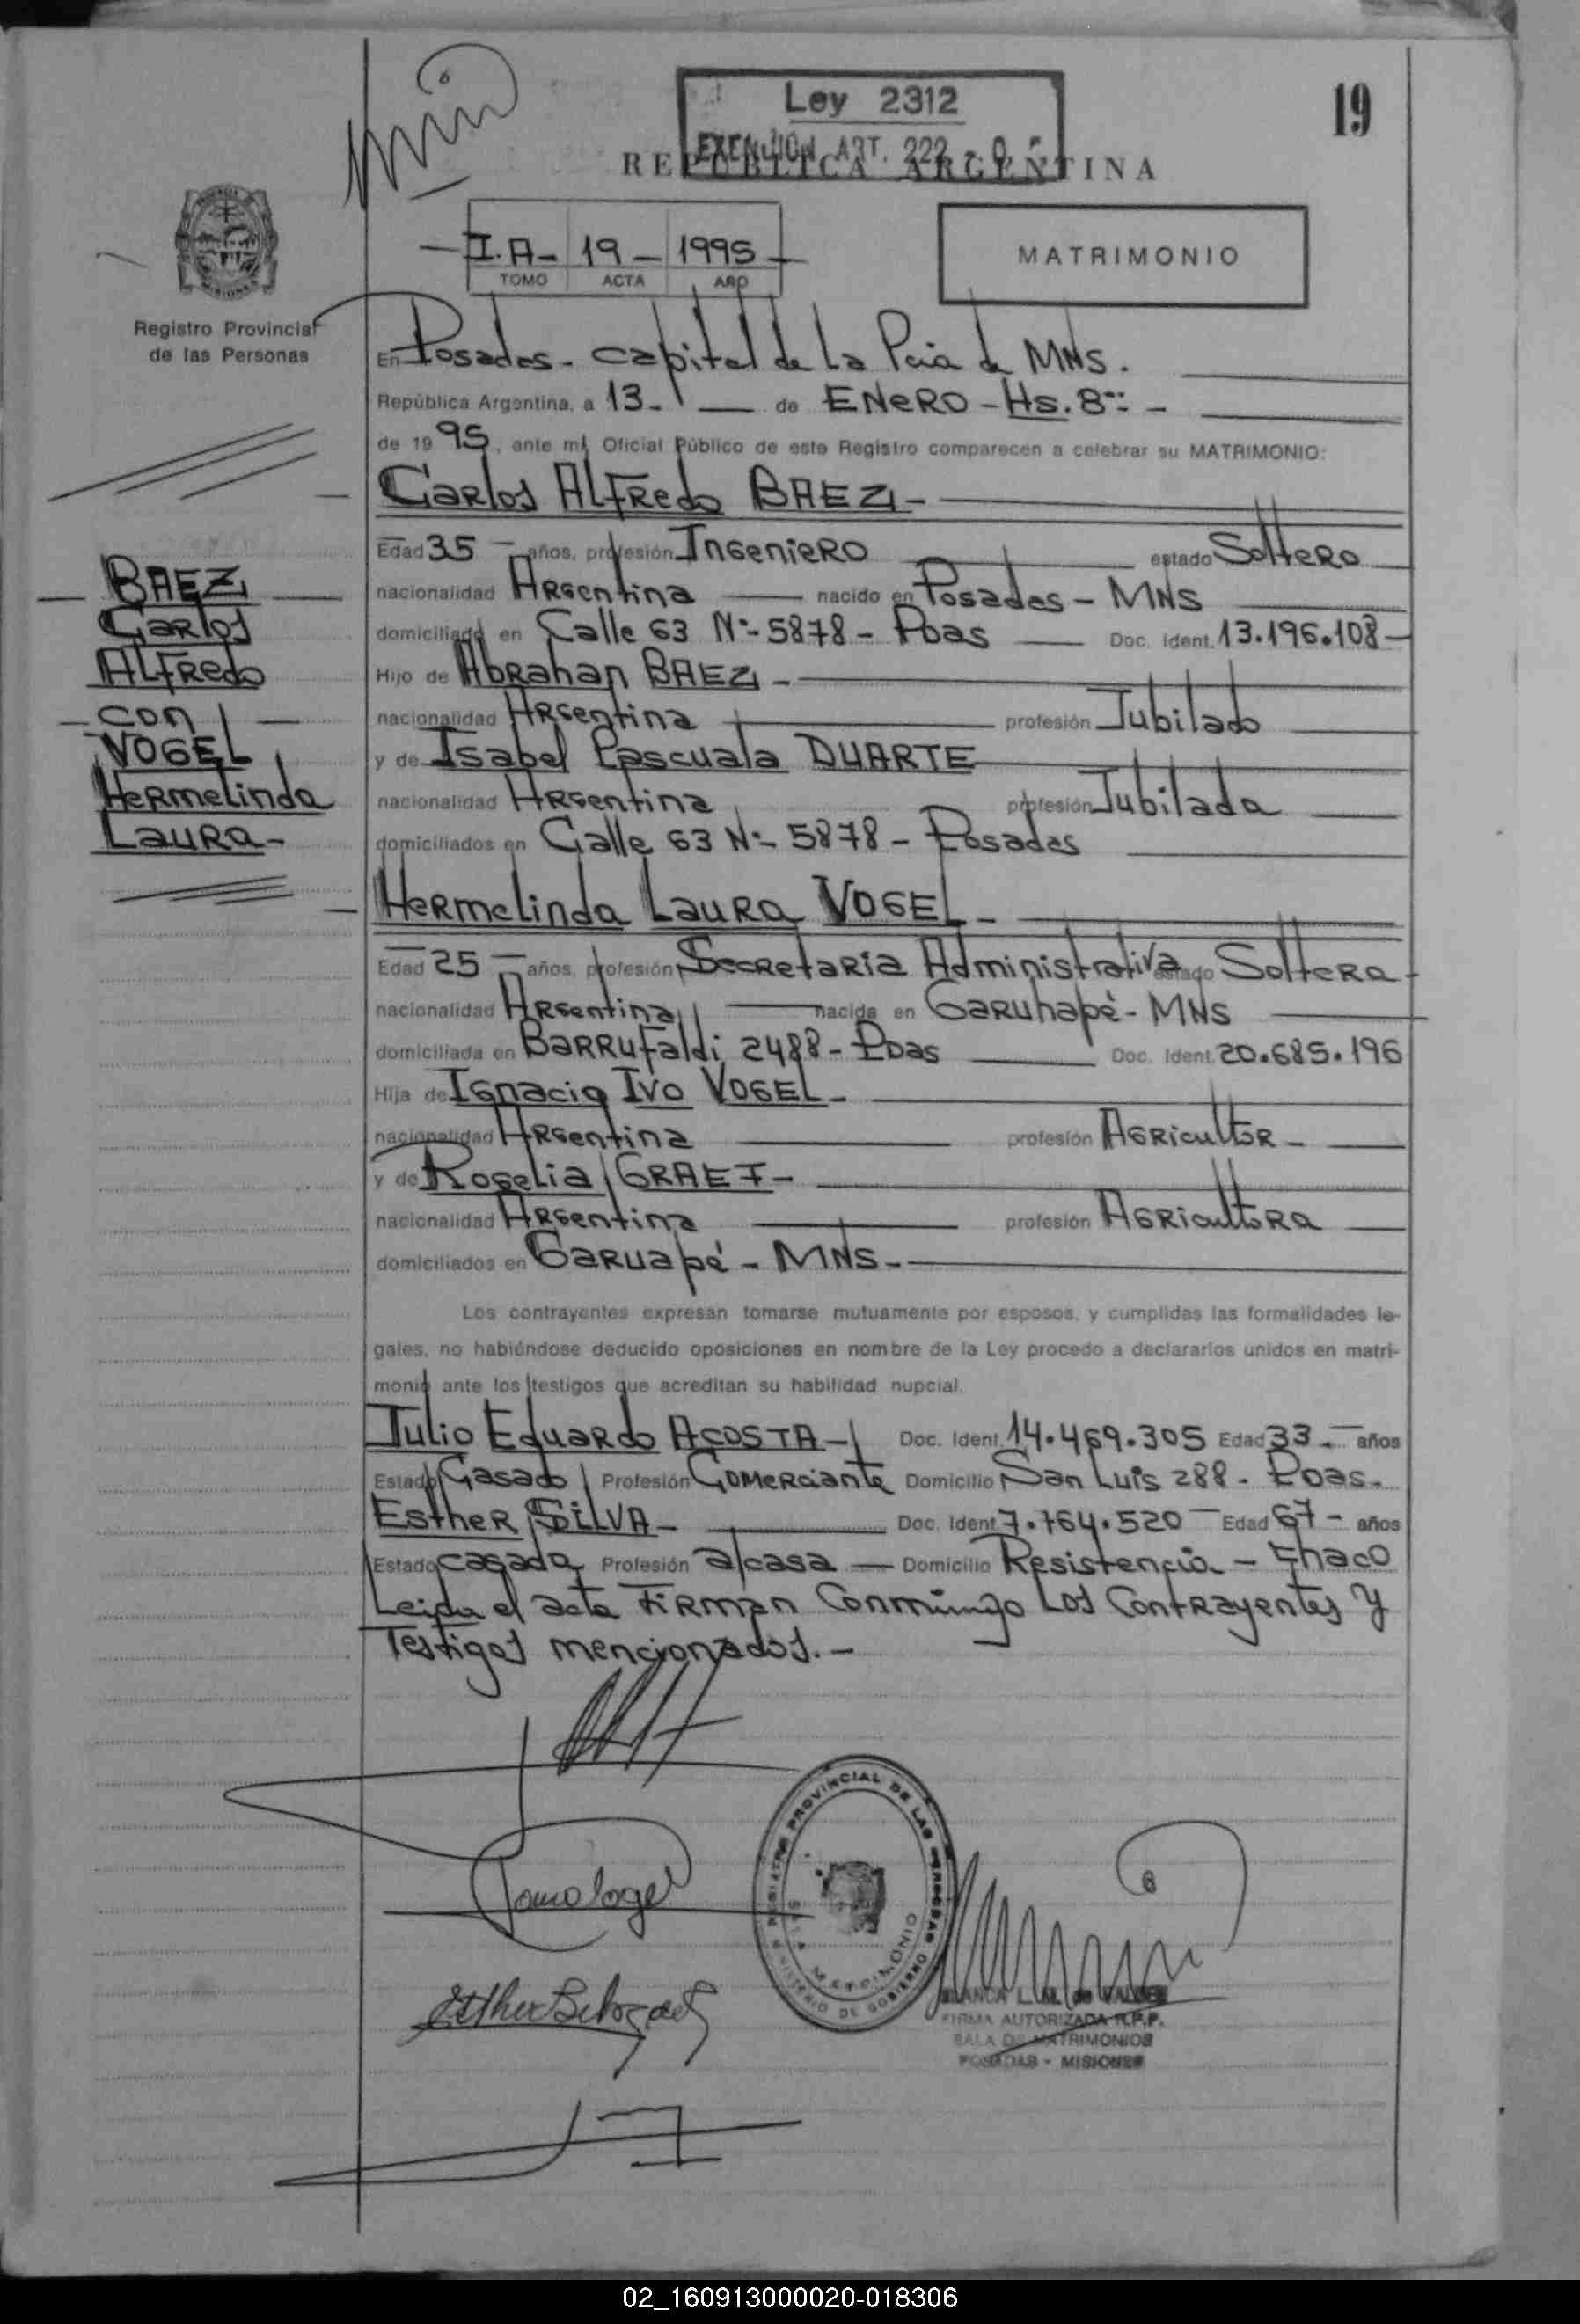 Ley 2312
EXENCION ART. 222
19
REPUBLICA ARGENTINA
I.A- 19- 1995
TOMO ACTA AÑO
MATRIMONIO
Registro Provincial
de las Personas
En Posadas- capital de La Pcia de MNS.
República Argentina, a 13- de ENERO - Hs. 8
de 1995, ante mí, Oficial Público de este Registro comparecen a celebrar su MATRIMONIO:
Carlos Alfredo BAEZ-
Edad 35 - años, profesión Ingeniero estado Soltero
nacionalidad Argentina nacido en Posadas - MNS
domiciliado en Calle 63 Nº- 5878 - Pdas Doc. Ident. 13.196.108-
Hijo de Abrahan BAEZ-
nacionalidad Argentina profesión Jubilado
y de Isabel Pascuala DUARTE
nacionalidad Argentina profesión Jubilada
domiciliados en Calle 63 Nº- 5878 - Posadas
BAEZ
Carlos
Alfredo
con
VOGEL
Hermelinda
Laura-
Hermelinda Laura VOGEL-
Edad 25 - años, profesión Secretaria Administrativa estado Soltera-
nacionalidad Argentina nacida en Garuhapé- MNS
domiciliada en Barrufaldi 2488- Pdas Doc. Ident. 20.685.196
Hija de Ignacio Ivo VOGEL-
nacionalidad Argentina profesión Agricultor-
y de Rogelia GRAEF-
nacionalidad Argentina profesión Agricultora
domiciliados en Garuapé - MNS-
Los contrayentes expresan tomarse mutuamente por esposos, y cumplidas las formalidades le-
gales, no habiéndose deducido oposiciones en nombre de la Ley procedo a declararlos unidos en matri-
monio ante los testigos que acreditan su habilidad nupcial.
Julio Eduardo ACOSTA- Doc. Ident. 14.469.305 Edad 33- años
Estado Casado Profesión Comerciante Domicilio San Luis 288- Pdas-
Esther SILVA- Doc. Ident. 7.764.520 - Edad 67- años
Estado casada Profesión a/casa - Domicilio Resistencia - Chaco
Leida el acta Firman Conmingo Los Contrayentes y
Testigos mencionados.-
REGISTRO PROVINCIAL DE LAS PERSONAS
MINISTERIO DE GOBIERNO
SALA MATRIMONIO
FIRMA AUTORIZADA R.P.P.
SALA DE MATRIMONIOS
POSADAS - MISIONES
02_160913000020-018306